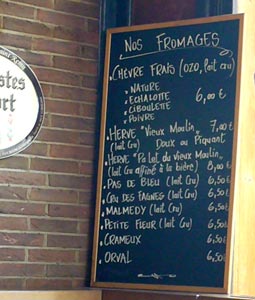 stes
rt
Nos FROMAGES
. CHÈVRE FRAIS (OZO, lait cru)
. NATURE
. ECHALOTTE 6,00 €
. CIBOULETTE
. POIVRE
. HERVE "Vieux Moulin" 7,00 €
(lait Cru) Doux ou Piquant
. HERVE "Pa Let du vieux Moulin"
(lait Cru affiné à la bière) 8,00 €
. PAS DE BLEU (lait Cru) 6,50 €
. CRU DES FAGNES (lait Cru) 6,50 €
. MALMEDY (lait Cru) 6,50 €
. PETITE FLEUR (lait Cru) 6,50 €
. CRAMEUX 6,50 €
. ORVAL 6,50 €